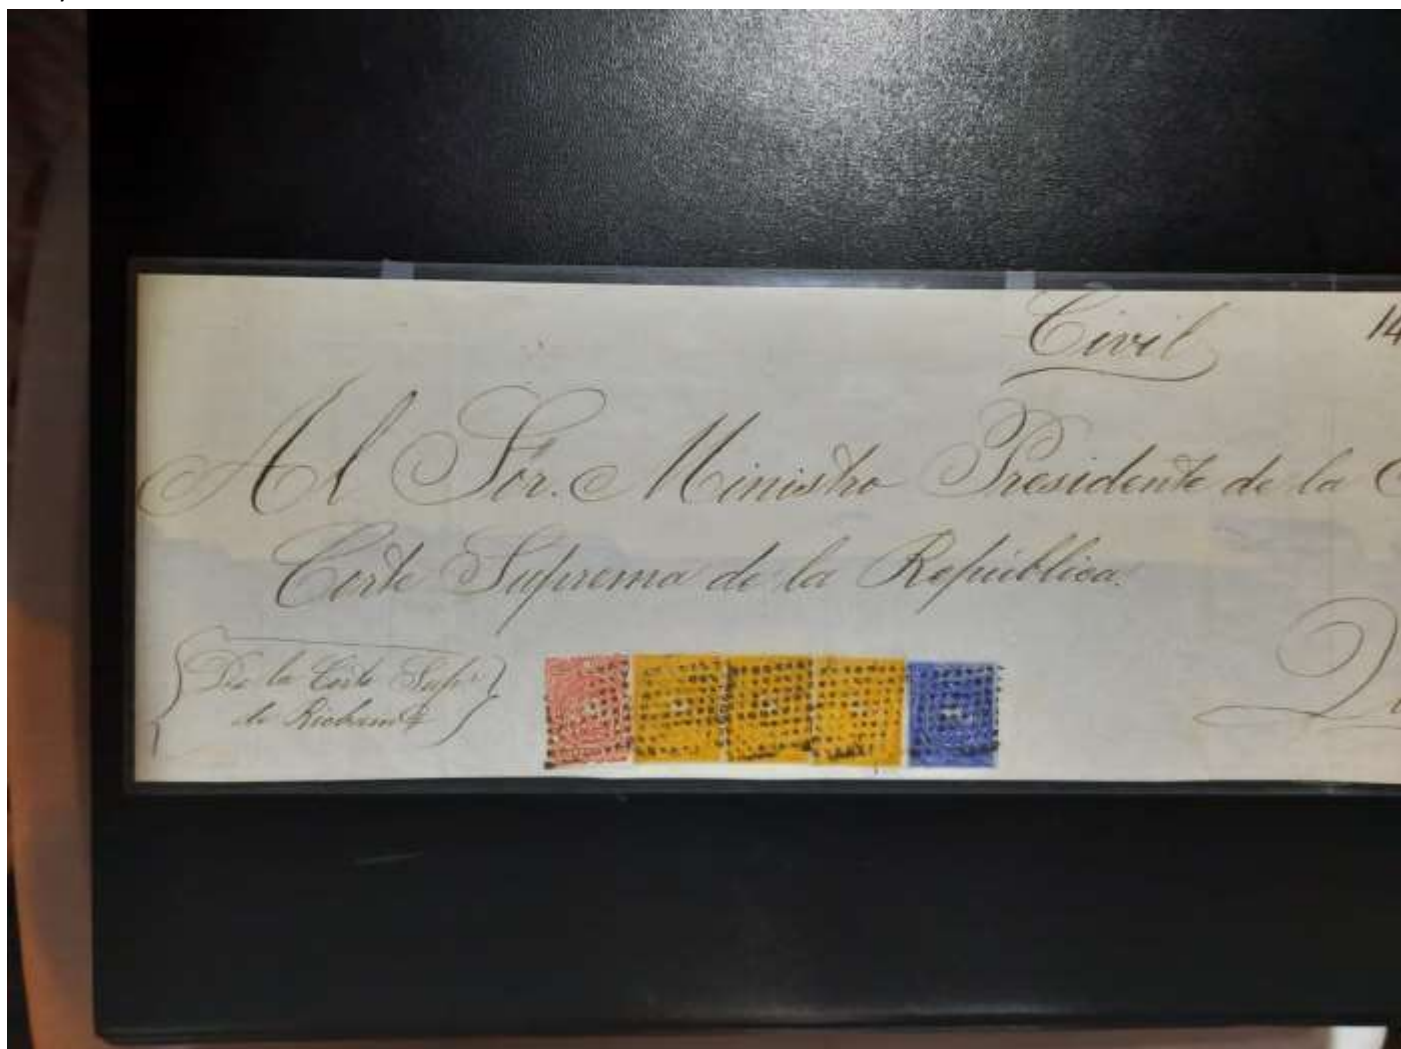 Civil 14
Al Sor. Ministro Presidente de la
Corte Suprema de la República.
De la Corte Supr.
de Riobamba